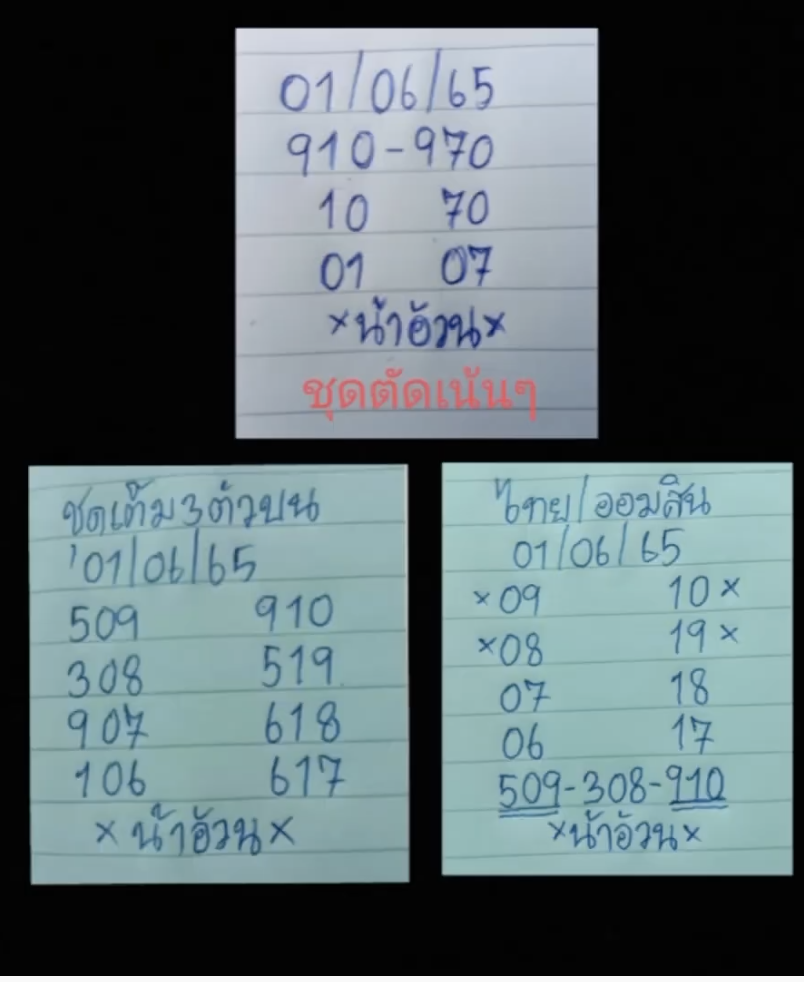 01/06/65
910-970
10 70
01 07
×น้าอ้วน×
ชุดตัดเน้นๆ
ชุดเต็ม3ตัวบน
'01/06/65
509 910
308 519
907 618
106 617
× น้าอ้วน ×
ไทย/ออมสิน
01/06/65
×09 10×
×08 19×
07 18
06 17
509-308-910
×น้าอ้วน×